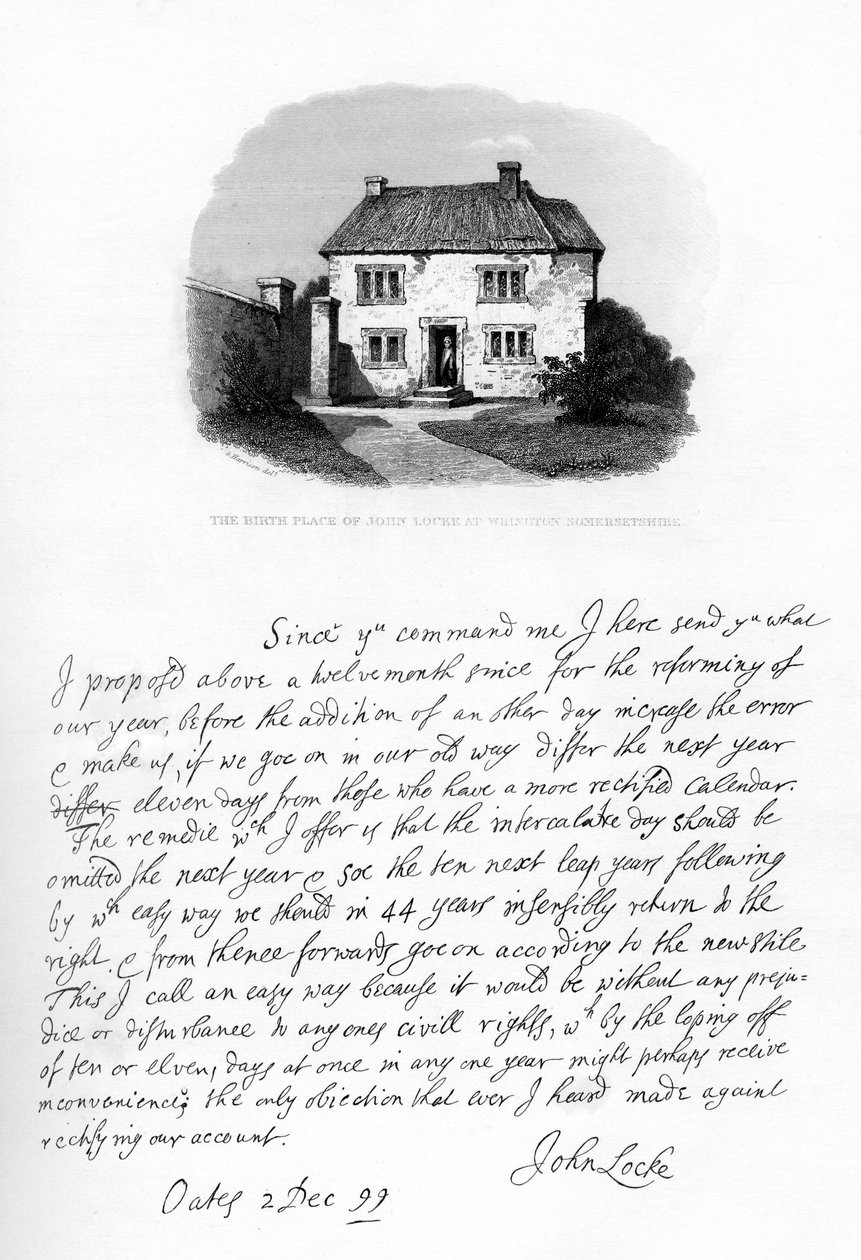 G Harrison delt
THE BIRTH PLACE OF JOHN LOCKE AT WRINGTON SOMERSETSHIRE.
Since yu command me I here send yu what
I propos'd above a twelvemonth since for the reforming of
our year, before the addition of an other day increase the error
& make us, if we goe on in our old way differ the next year
differ eleven days from those who have a more rectified Calendar.
The remedie wch I offer is that the intercalare day should be
omitted the next year & soe the ten next leap years following
by wch easy way we should in 44 years insensibly return to the
right. & from thence forwards goe on according to the new stile
This I call an easy way because it would be without any preju=
dice or disturbance to any ones civill rights, wch by the loping off
of ten or elven, days at once in any one year might perhaps receive
inconvenience; the only obiection that ever I heard made againt
rectifying our account.
John Locke
Oates 2 Dec 99